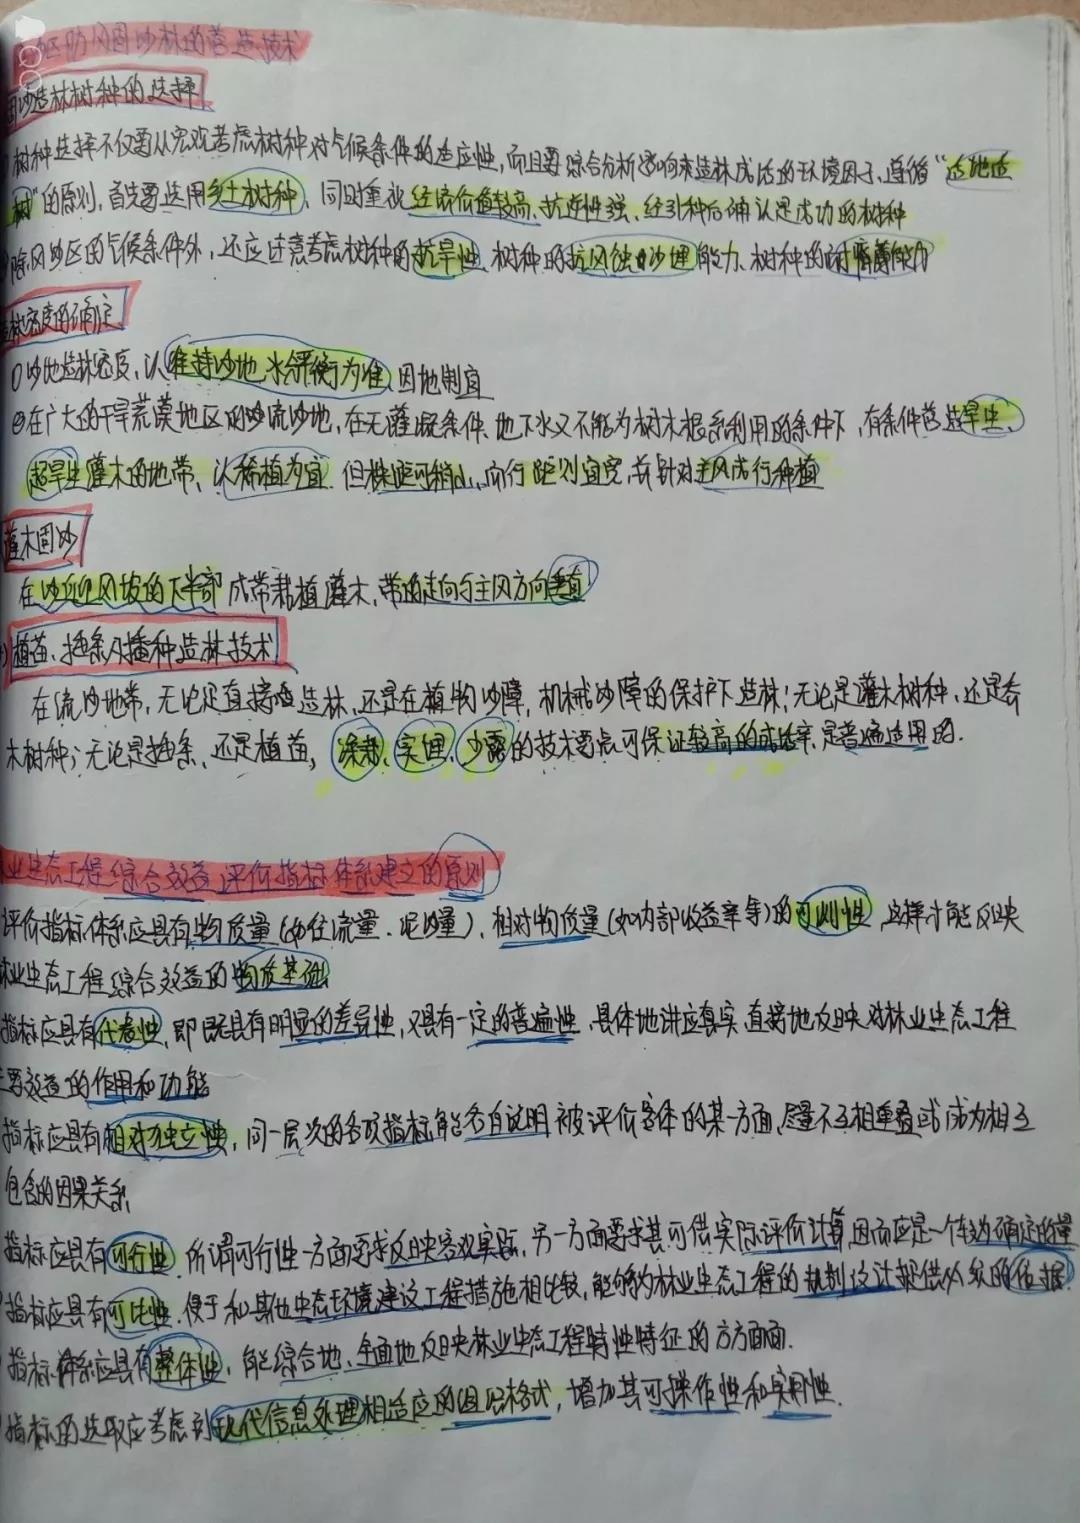 区防风固沙林的营造技术
固沙造林树种的选择
树种选择不仅要从宏观考虑树种对气候条件的适应性，而且要综合分析影响来造林成活的环境因子、遵循“适地适
树”的原则，首先要选用乡土树种、同时重视经济价值较高、抗逆性强、经引种后确认是成功的树种
除风沙区的气候条件外，还应注意考虑树种的抗旱性、树种的抗风蚀沙埋能力、树种的耐瘠薄能力
造林密度的确定
①沙地造林密度，以维持沙地水分平衡为准、因地制宜
②在广大的干旱荒漠地区的沙流沙地，在无灌溉条件、地下水又不能为树木根系利用的条件下，有条件营造旱生、
超旱生灌木的地带，以稀植为宜.但株距可稍小，而行距则宜宽，并针对主风成行种植
灌木固沙
在沙丘迎风坡的下半部成带栽植灌木、带的走向与主风方向垂直
植苗、插条及播种造林技术
在流沙地带，无论是直接造林、还是在植物沙障，机械沙障的保护下造林；无论是灌木树种、还是乔
木树种；无论是插条、还是植苗，深栽、实埋、少露的技术要点可保证较高的成活率、是普遍适用的.
业生态工程综合效益评价指标体系建立的原则
评价指标体系应具有物质量（如径流量、泥沙量）、相对物质量（如内部收益率等）的可测性，这样才能反映
林业生态工程综合效益的物质基础
指标应具有代表性，即既具有明显的差异性，又具有一定的普遍性、具体地讲应真实直接地反映对林业生态工程
主要效益的作用和功能
指标应具有相对独立性，同一层次的各项指标能各自说明被评价客体的某一方面，尽量不互相重叠或成为相互
包含的因果关系
指标应具有可行性.所谓可行性一方面要求反映客观实际，另一方面要求其可供实际评价计算，因而应是一个较为确定的量
指标应具有可比性.便于和其他生态环境建设工程措施相比较，能够为林业生态工程的规划设计提供必须的依据
指标体系应具有整体性，能综合地、全面地反映林业生态工程特性特征的方方面面.
指标的选取应考虑到现代信息处理相适应的组织格式，增加其可操作性和实用性.